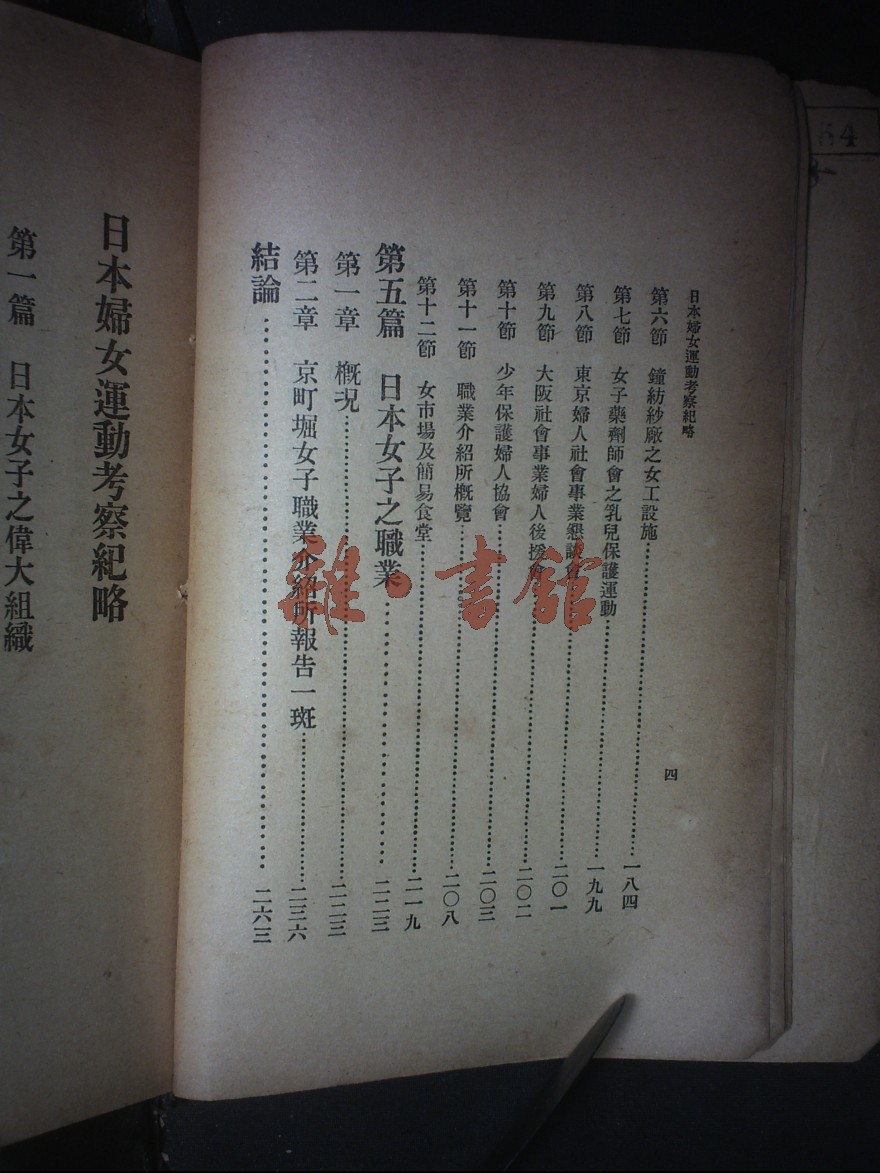 日本婦女運動考察紀略
四
第六節　鐘紡紗廠之女工設施……一八四
第七節　女子藥劑師會之乳兒保護運動……一九九
第八節　東京婦人社會事業懇談會……二〇一
第九節　大阪社會事業婦人後援會……二〇二
第十節　少年保護婦人協會……二〇三
第十一節　職業介紹所概覽……二〇八
第十二節　女市場及簡易食堂……二一九
第五篇　日本女子之職業……二二三
第一章　概况……二二三
第二章　京町堀女子職業介紹所報告一斑……二三六
結論……二六三
日本婦女運動考察紀略
第一篇　日本女子之偉大組織
雜·書館
84